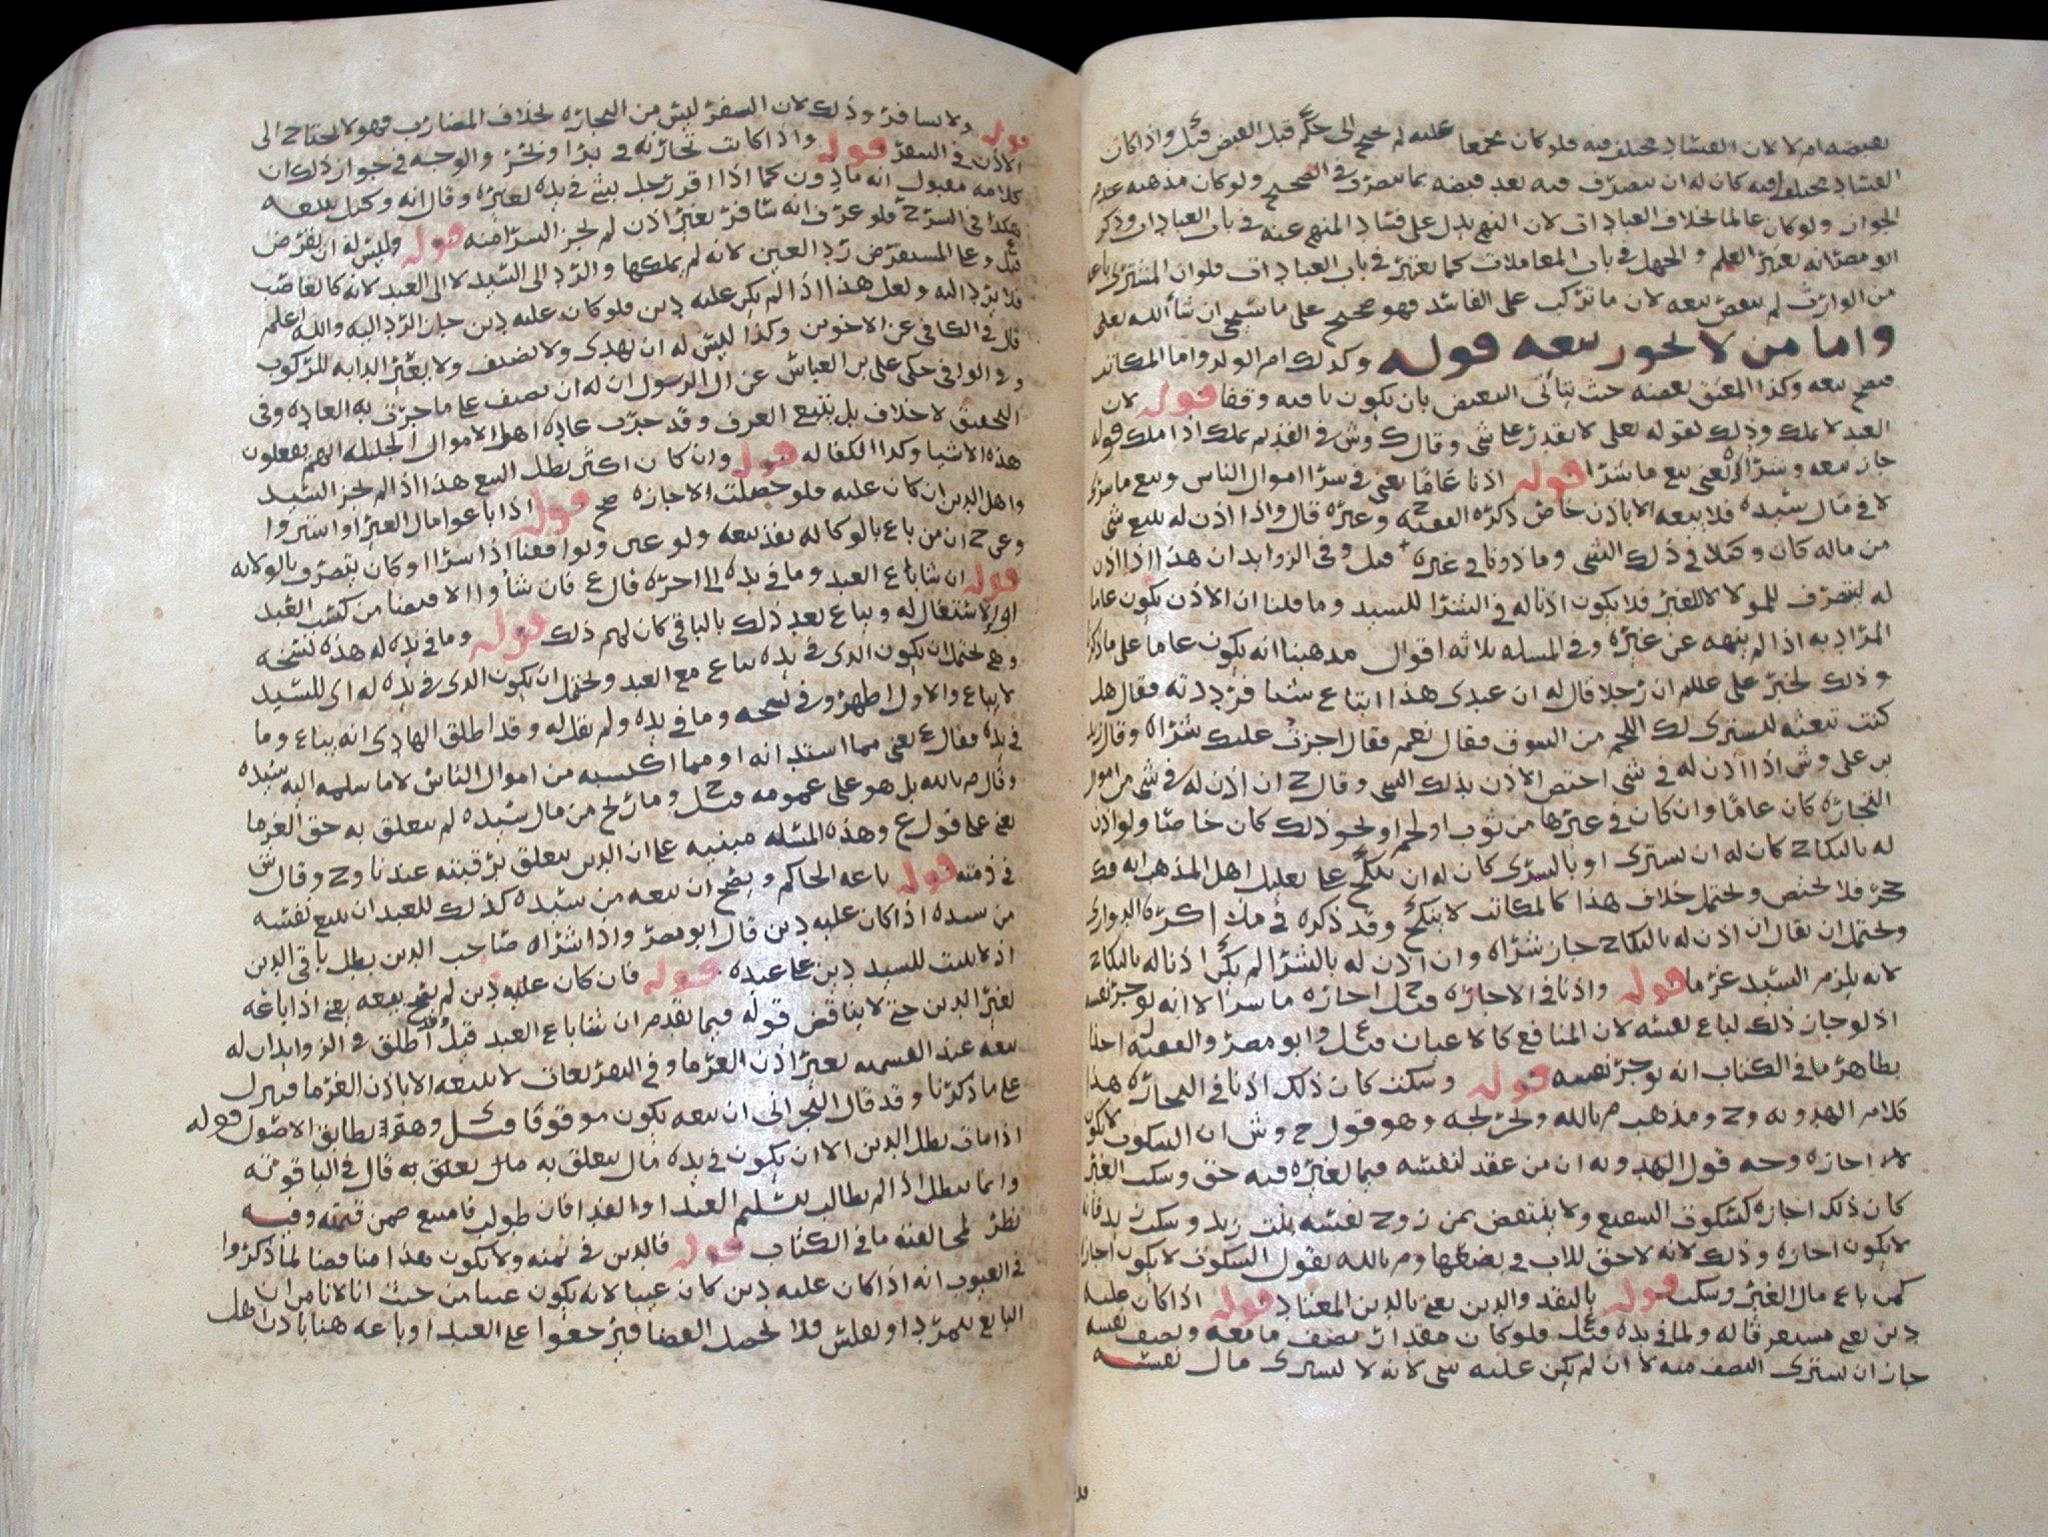 بقبضه ام لا لان الفساد مختلف فيه فلو كان مجمعا عليه لم يحتج الى حكم قبل القبض قيل واذا كان
الفساد مختلف فيه كان له ان يتصرف فيه بعد قبضه بما يتصرف في الصحيح ولو كان مذهبه عدم
الجواز ولو كان عالما بخلاف العبادات لان النهي يدل على فساد المنهي عنه في باب العبادات وذكر
ابو مضر انه يعتبر العلم والجهل في باب المعاملات كما يعتبر في باب العبادات فلو ان المشتري باعه
من الوارث لم ينقض بيعه لان ما تركب على الفاسد فهو صحيح على ما سيجي ان شا الله تعلى
واما من لا يجوز بيعه قوله وكذلك ام الولد واما المكاتب
فيصح بيعه وكذا المعتق بعضه حيث يتأتى التبعيض بان يكون باقيه وقفا قوله لان
العبد لا يملك وذلك لقوله تعلى لا يقدر على شي وقال ك وش في القديم يملك اذا ملك قوله
جاز بيعه وشراؤه يعني بيع ما شرا قوله اذنا عاما يعني في شرا اموال الناس وبيع ما شرى
لا في مال سيده فلا يبيعه الا باذن خاص ذكره الفقيه ح وغيره قال واذا اذن له ببيع شي
من ماله كان وكيلا في ذلك الشي وماذونا في غيره قيل وفي الزوايد ان هذا اذا اذن
له ليتصرف للمولا لا للغير فلا يكون اذنا له في الشرا للسيد وما قلنا ان الاذن يكون عاما
المراد به اذا لم ينهه عن غيره وفي المسله ثلاثه اقوال مذهبنا انه يكون عاما على ما ذكر
وذلك لخبر علي عللم ان رجلا قال له ان عبدي هذا ابتاع شيا فرددته فقال هل
كنت تبعثه ليشتري لك اللحم من السوق فقال نعم فقال اجزت عليك شراه وقال زيد
بن علي وش اذا اذن له في شي اختص الاذن بذلك الشي وقال ح ان اذن له في شي من امور
التجاره كان عاما وان كان في غيرها من ثوب او لحم او نحو ذلك كان خاصا ولو اذن
له بالنكاح كان له ان يشتري او بالشرى كان له ان ينكح على تعليل اهل المذهب انه فك
حجر فلا يختص ويحتمل خلاف هذا كالمكاتب لا ينكح وقد ذكره في ن ذكره الدواري
ويحتمل ان يقال ان اذن له بالنكاح جاز شراه وان اذن له بالشرا لم يكن اذنا له بالنكاح
لانه يلزم السيد غرما قوله واذنا في الاجازه قيل ح اجازه ما شرا لا انه يوجر نفسه
اذ لو جاز ذلك لباع نفسه لان المنافع كالاعيان قيل ع وابو مضر والفقيه احذا
بظاهر ما في الكتاب انه يوجر نفسه قوله وسكت كان ذلك اذنا في التجاره هذا
كلام الهدويه وح ومذهب م بالله وتخريجه وهو قول ح وش ان السكوت لا يكون
اجازه وجه قول الهدويه ان من عقد لنفسه فيما لغيره فيه حق وسكت الغير
كان ذلك اجازه كسكوت الشفيع ولا ينتقض بمن زوج نفسه بنت زيد وسكت زيد فانه
لا يكون اجازه وذلك لانه لا حق للاب في بضعها وم بالله يقول السكوت لا يكون اجازه
كمن باع مال الغير وسكت قوله بالنقد والدين يعني بالدين المعتاد قوله اذا كان عليه
دين يعني مستغرقا له ولما في يده قيل ع فلو كان مقدار نصف ما معه ونصف نفسه
جاز ان يشتري النصف منه لا ان لم يكن عليه شي لانه لا يشتري مال نفسه
قوله ولا يسافر وذلك لان السفر ليس من التجاره بخلاف المضارب فهو لا يحتاج الى
الاذن في السفر قوله واذا كانت تجارته في بر او بحر والوجه في جواز ذلك ان
كلامه مقبول انه ماذون كما اذا اقر رجل بشي في يده لغيره وقال انه وكيل ببيعه
هكذا في الشرح فلو عرف انه سافر بغير اذن لم يجز الشرا منه قوله وليس له ان يقرض
قيل ع وعلى المستقرض رد العين لانه لم يملكها والرد الى السيد لا الى العبد لانه كالغاصب
فلا يرد اليه ولعل هذا اذا لم يكن عليه دين فلو كان عليه دين جاز الرد اليه والله اعلم
قال في الكافي عن الاخوين وكذا ليس له ان يهدي ولا يضيف ولا يعير الدابه للركوب
وفي الوافي حكى علي بن العباس عن ال الرسول ان له ان يضيف على ما جرت به العاده وفي
التحقيق لا خلاف بل يتبع العرف وقد جرت عاده اهل الاموال الجليله انهم يفعلون
هذه الاشيا وكذا الكفاله قوله وان كان اكثر بطل البيع هذا اذا لم يجز السيد
واهل الدين ان كان عليه فلو حصلت الاجازه صح قوله اذا باعوا مال الغير او اشتروا
وعن ح ان من باع بالوكاله نفذ بيعه ولو غبن ويوافقنا اذا شرا او كان يتصرف بالولايه
قوله ان شا باع العبد وما في يده الى اخره قال ع فان شاوا الاقتضا من كسب العبد
او الاستغلال له ويباع بعد ذلك بالباقي كان لهم ذلك قوله وما في يده له هذه نسخه
وهي تحتمل ان يكون الذي في يده يباع مع العبد ويحتمل ان يكون الذي في يده له اي للسيد
لا يباع والاول اظهر وفي نسخه وما في يده ولم يقل له وقد اطلق الهادي انه يباع وما
في يده فقال ع يعني مما استدانه او مما اكتسبه من اموال الناس لا ما سلمه اليه سيده
وقال م بالله بل هو على عمومه قيل ح وما ربح من مال سيده لم يتعلق به حق الغرما
يعني على قول ع وهذه المسله مبنيه على ان الدين يتعلق برقبته عندنا وح وقال ش
في ذمته قوله باعه الحاكم ويصح ان يبيعه من سيده كذلك للعبد ان يبيع نفسه
من سيده اذا كان عليه دين قال ابو مضر واذا شراه صاحب الدين بطل باقي الدين
اذ لا يثبت للسيد دين على عبده قوله فان كان عليه دين لم يصح بيعه يعني اذا باعه
لغير الدين حتى لا يناقض قوله فيما تقدم ان شا باع العبد قيل ف وقد اطلق في الزوايد ان له
بيعه عند القسمه بغير اذن الغرما وفي التقريعات لا يبيعه الا باذن الغرما فيهل
على ما ذكرنا وقد قال النجراني ان بيعه يكون موقوفا قيل ي وهو يطابق الاصول قوله
اذا مات بطل الدين الا ان يكون في يده مال يتعلق به مال يتعلق به قال في الياقوته
وانما يبطل اذا لم يطالب بتسليم العبد او الفدا فان طولب فامتنع ضمن قيمته وفيه
نظر لمخالفته ما في الكتاب قوله فالدين في ثمنه ولا يكون هذا مناقضا لما ذكروا
في العيوب انه اذا كان عليه دين كان عيبا لانه يكون عيبا من حيث انا لا نامن ان
البايع يتمرد او يفلس فلا يحصل القضا فيرجعوا على العبد او باعه هنا باذن اهل